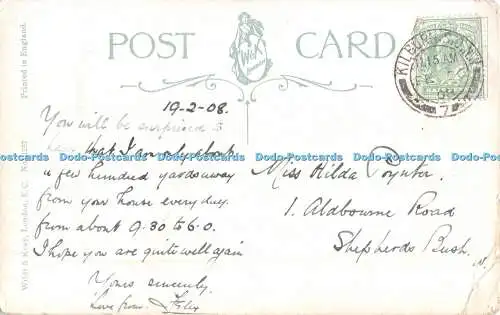 POST CARD
W&K
London
Printed in England.
Wildt & Kray, London, E.C. No.
KILBURN
19-2-08.
You will be surprised to
hear that I am only about
a few hundred yards away
from your house every day
from about 9.30 to 6.0.
I hope you are quite well again
Yours sincerely,
Love from
Miss Hilda Poynter.
1. Aldbourne Road
Shepherds Bush.
W.
Dodo-Postcards Dodo-Postcards Dodo-Postcards Dodo-Postcards Dodo-Postcards Dodo-Postcards